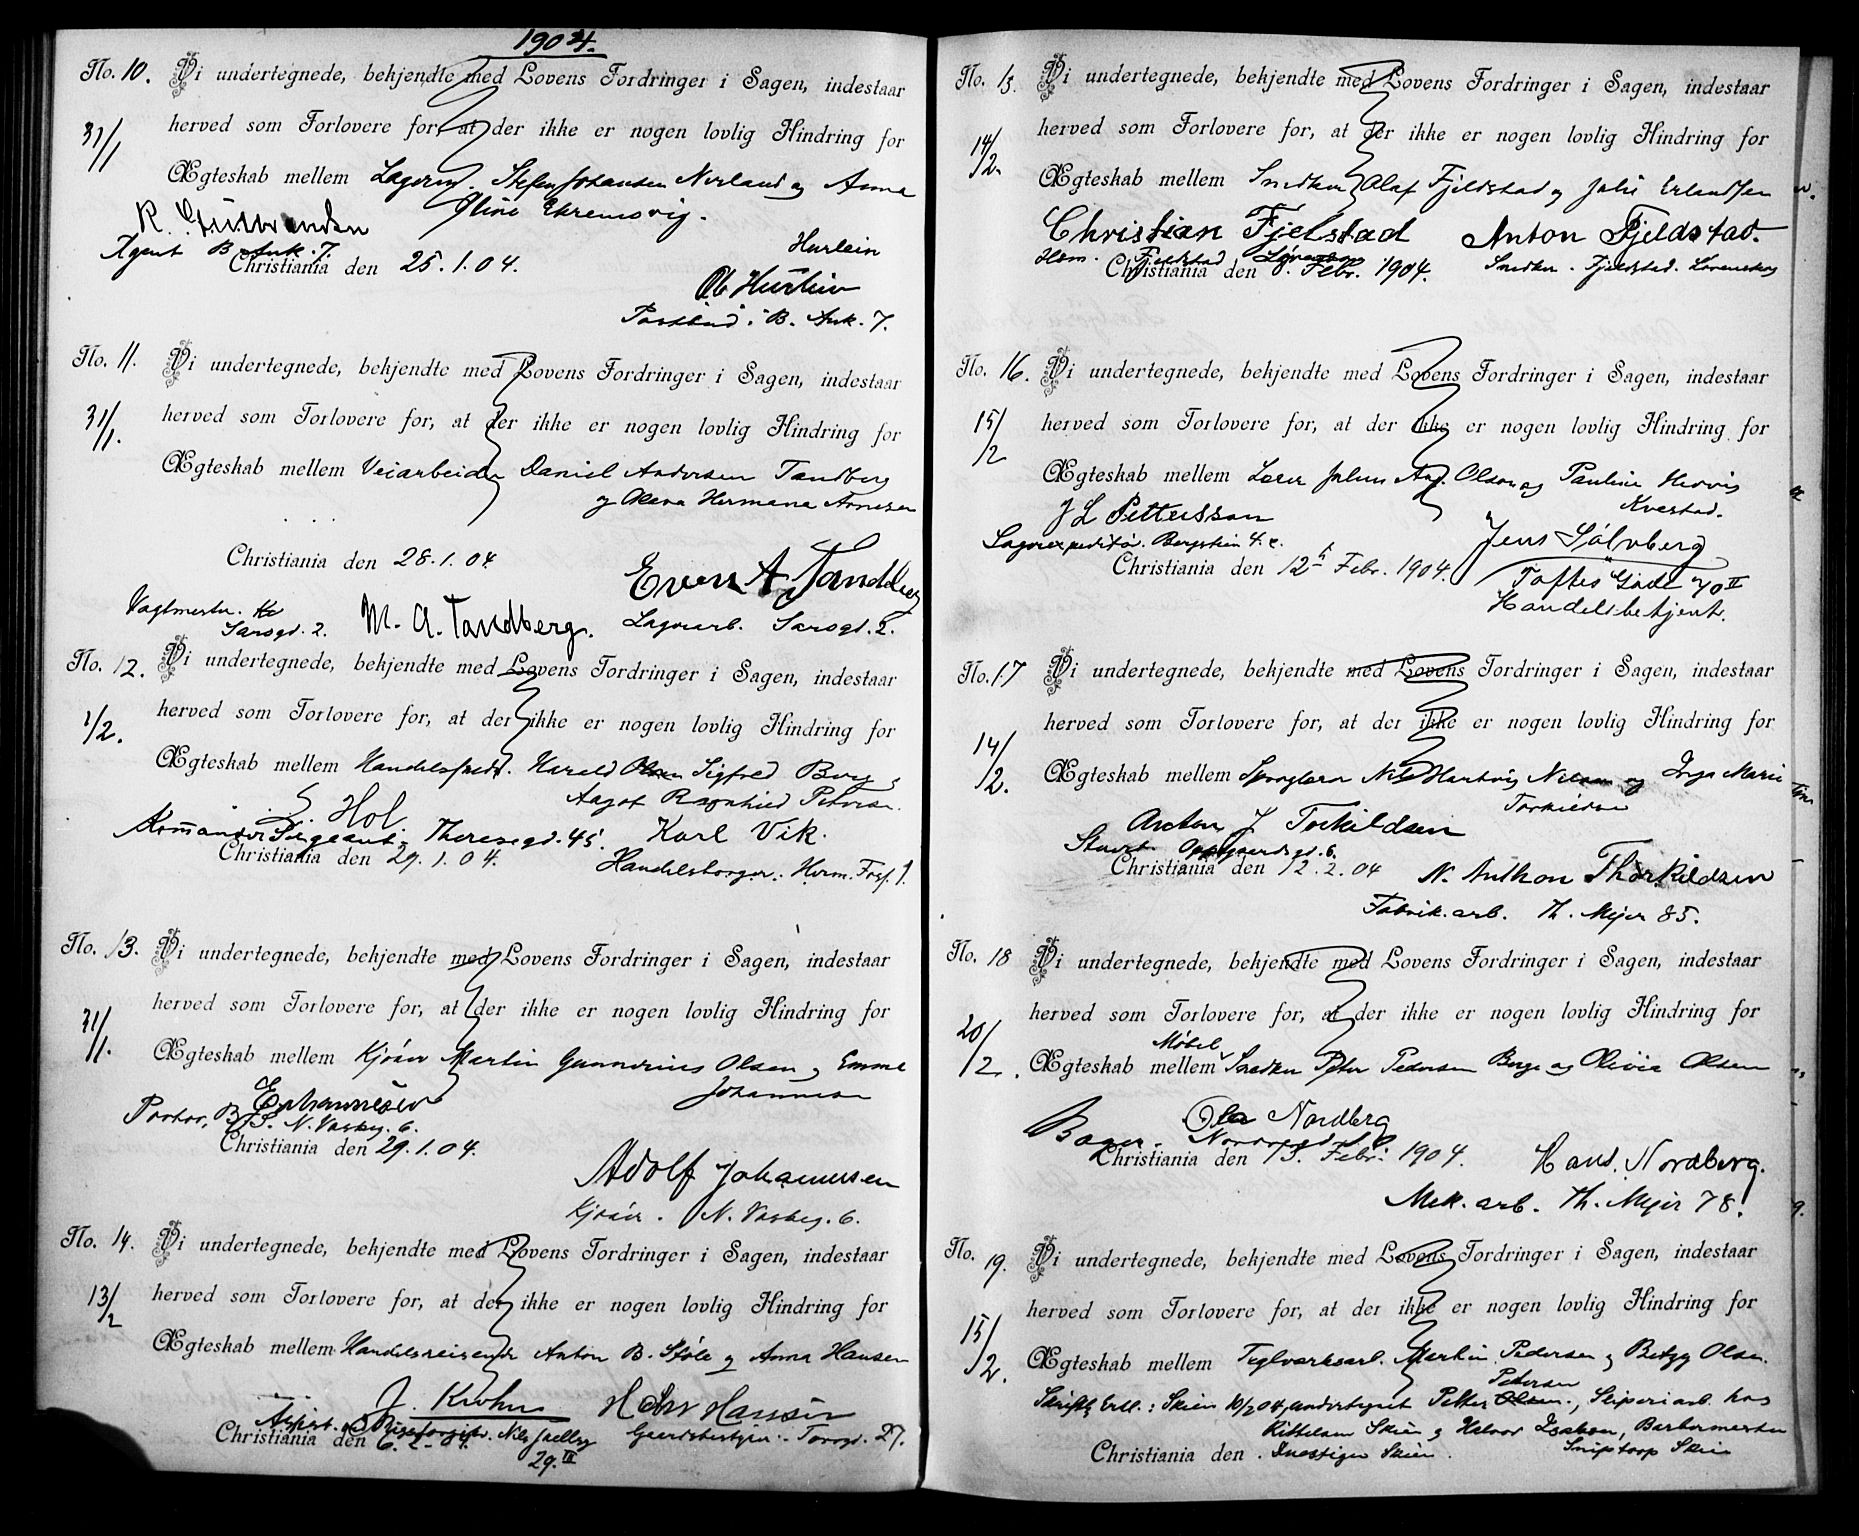 1904.
No. 10. Vi undertegnede, bekjendte med Lovens Fordringer i Sagen, indestaar
31/1 herved som Forlovere for, at der ikke er nogen lovlig Hindring for
Ægteskab mellem Lagerm. Stefen Johansen Norland og Anna
Oline Ekremsvig.
R. Gulbrandsen
Agent B Ank. 7. Hurlein
Christiania den 25.1.04.
Ob Hurlein
Postbud B. Ank. 7.
No. 11. Vi undertegnede, bekjendte med Lovens Fordringer i Sagen, indestaar
31/1. herved som Forlovere for, at der ikke er nogen lovlig Hindring for
Ægteskab mellem Veiarbeider Daniel Andersen Tandberg
og Olava Hermana Arnesen
Christiania den 28.1.04
Even A Tandberg
Vagtmester.
Sarsgd. 2. M. A. Tandberg. Lagerarb. Sarsgd. 2.
No. 12. Vi undertegnede, bekjendte med Lovens Fordringer i Sagen, indestaar
1/2. herved som Forlovere for, at der ikke er nogen lovlig Hindring for
Ægteskab mellem Handelsfuldm. Harald Olsen Sigfred Borg
Aagot Ragnhild Petersen.
S. Hol Karl Vik.
Kommandersergeant. Theresegd. 45.
Christiania den 29.1.04. Handelsborger. Herm. Foss. 1.
No. 13. Vi undertegnede, bekjendte med Lovens Fordringer i Sagen, indestaar
31/1. herved som Forlovere for, at der ikke er nogen lovlig Hindring for
Ægteskab mellem Kjøsør Martin Gunnerius Olsen og Emma
Johannesen
E Johannesen
Portør, B/S. N. Vaskeg. 6.
Christiania den 29.1.04.
Adolf Johannesen
Kjøsør. N. Vaskeg. 6.
No. 14. Vi undertegnede, bekjendte med Lovens Fordringer i Sagen, indestaar
13/2 herved som Forlovere for, at der ikke er nogen lovlig Hindring for
Ægteskab mellem Handelsreisende Anton B. Støle og Anna Hansen
J. Krohn Hansen
Christiania den 6.2.04. Gaardsbestyrer. Torvgd. 27.
29. III
No. 15. Vi undertegnede, bekjendte med Lovens Fordringer i Sagen, indestaar
14/2 herved som Forlovere for, at der ikke er nogen lovlig Hindring for
Ægteskab mellem Snedker Olaf Fjeldstad og Julie Erlandsen
Christian Fjelstad Anton Fjeldstad.
Hsm. Fjeldstad Snedker. Fjeldstad. Lørenskog
Christiania den Febr. 1904.
No. 16. Vi undertegnede, bekjendte med Lovens Fordringer i Sagen, indestaar
15/2 herved som Forlovere for, at der ikke er nogen lovlig Hindring for
Ægteskab mellem Lærer Johan Aug. Olson og Pauline Hervig
Kvestad.
J L Pettersson
Lagerexpeditør. Bergstien 4.c. Jens Sølvberg
Christiania den 12te Febr. 1904. Toftes Gade 70 II
Handelsbetjent.
No. 17 Vi undertegnede, bekjendte med Lovens Fordringer i Sagen, indestaar
14/2. herved som Forlovere for, at der ikke er nogen lovlig Hindring for
Ægteskab mellem Nils Hartvig Nilsen og Inga Marie
Torkildsen
Anton J Torkildsen
Stuert Oppegaardsgd. 6.
Christiania den 12.2.04 N. Anthon Thorkildsen
Fabrik.arb. Th. Mejer 85.
No. 18 Vi undertegnede, bekjendte med Lovens Fordringer i Sagen, indestaar
20/2. herved som Forlovere for, at der ikke er nogen lovlig Hindring for
Møbel
Ægteskab mellem Snedker Peter Pedersen Berge og Olivia Olsen
Ole Nordberg
Bager.
Christiania den 13. Febr. 1904. Hans. Nordberg.
Mek. arb. Th. Mejer 78.
No. 19. Vi undertegnede, bekjendte med Lovens Fordringer i Sagen, indestaar
15/2. herved som Forlovere for, at der ikke er nogen lovlig Hindring for
Ægteskab mellem Teglværksarb. Martin Pedersen og Betzy Olsen.
Pedersen
Skriftl. Erkl.: Skien 10/2 04 undertegnet Petter Olsen., Sliperiarb. hos
Kittelsen Skien og Halvor Isaksen, Barbermester
Christiania den . Skien. Sniptorp Skien